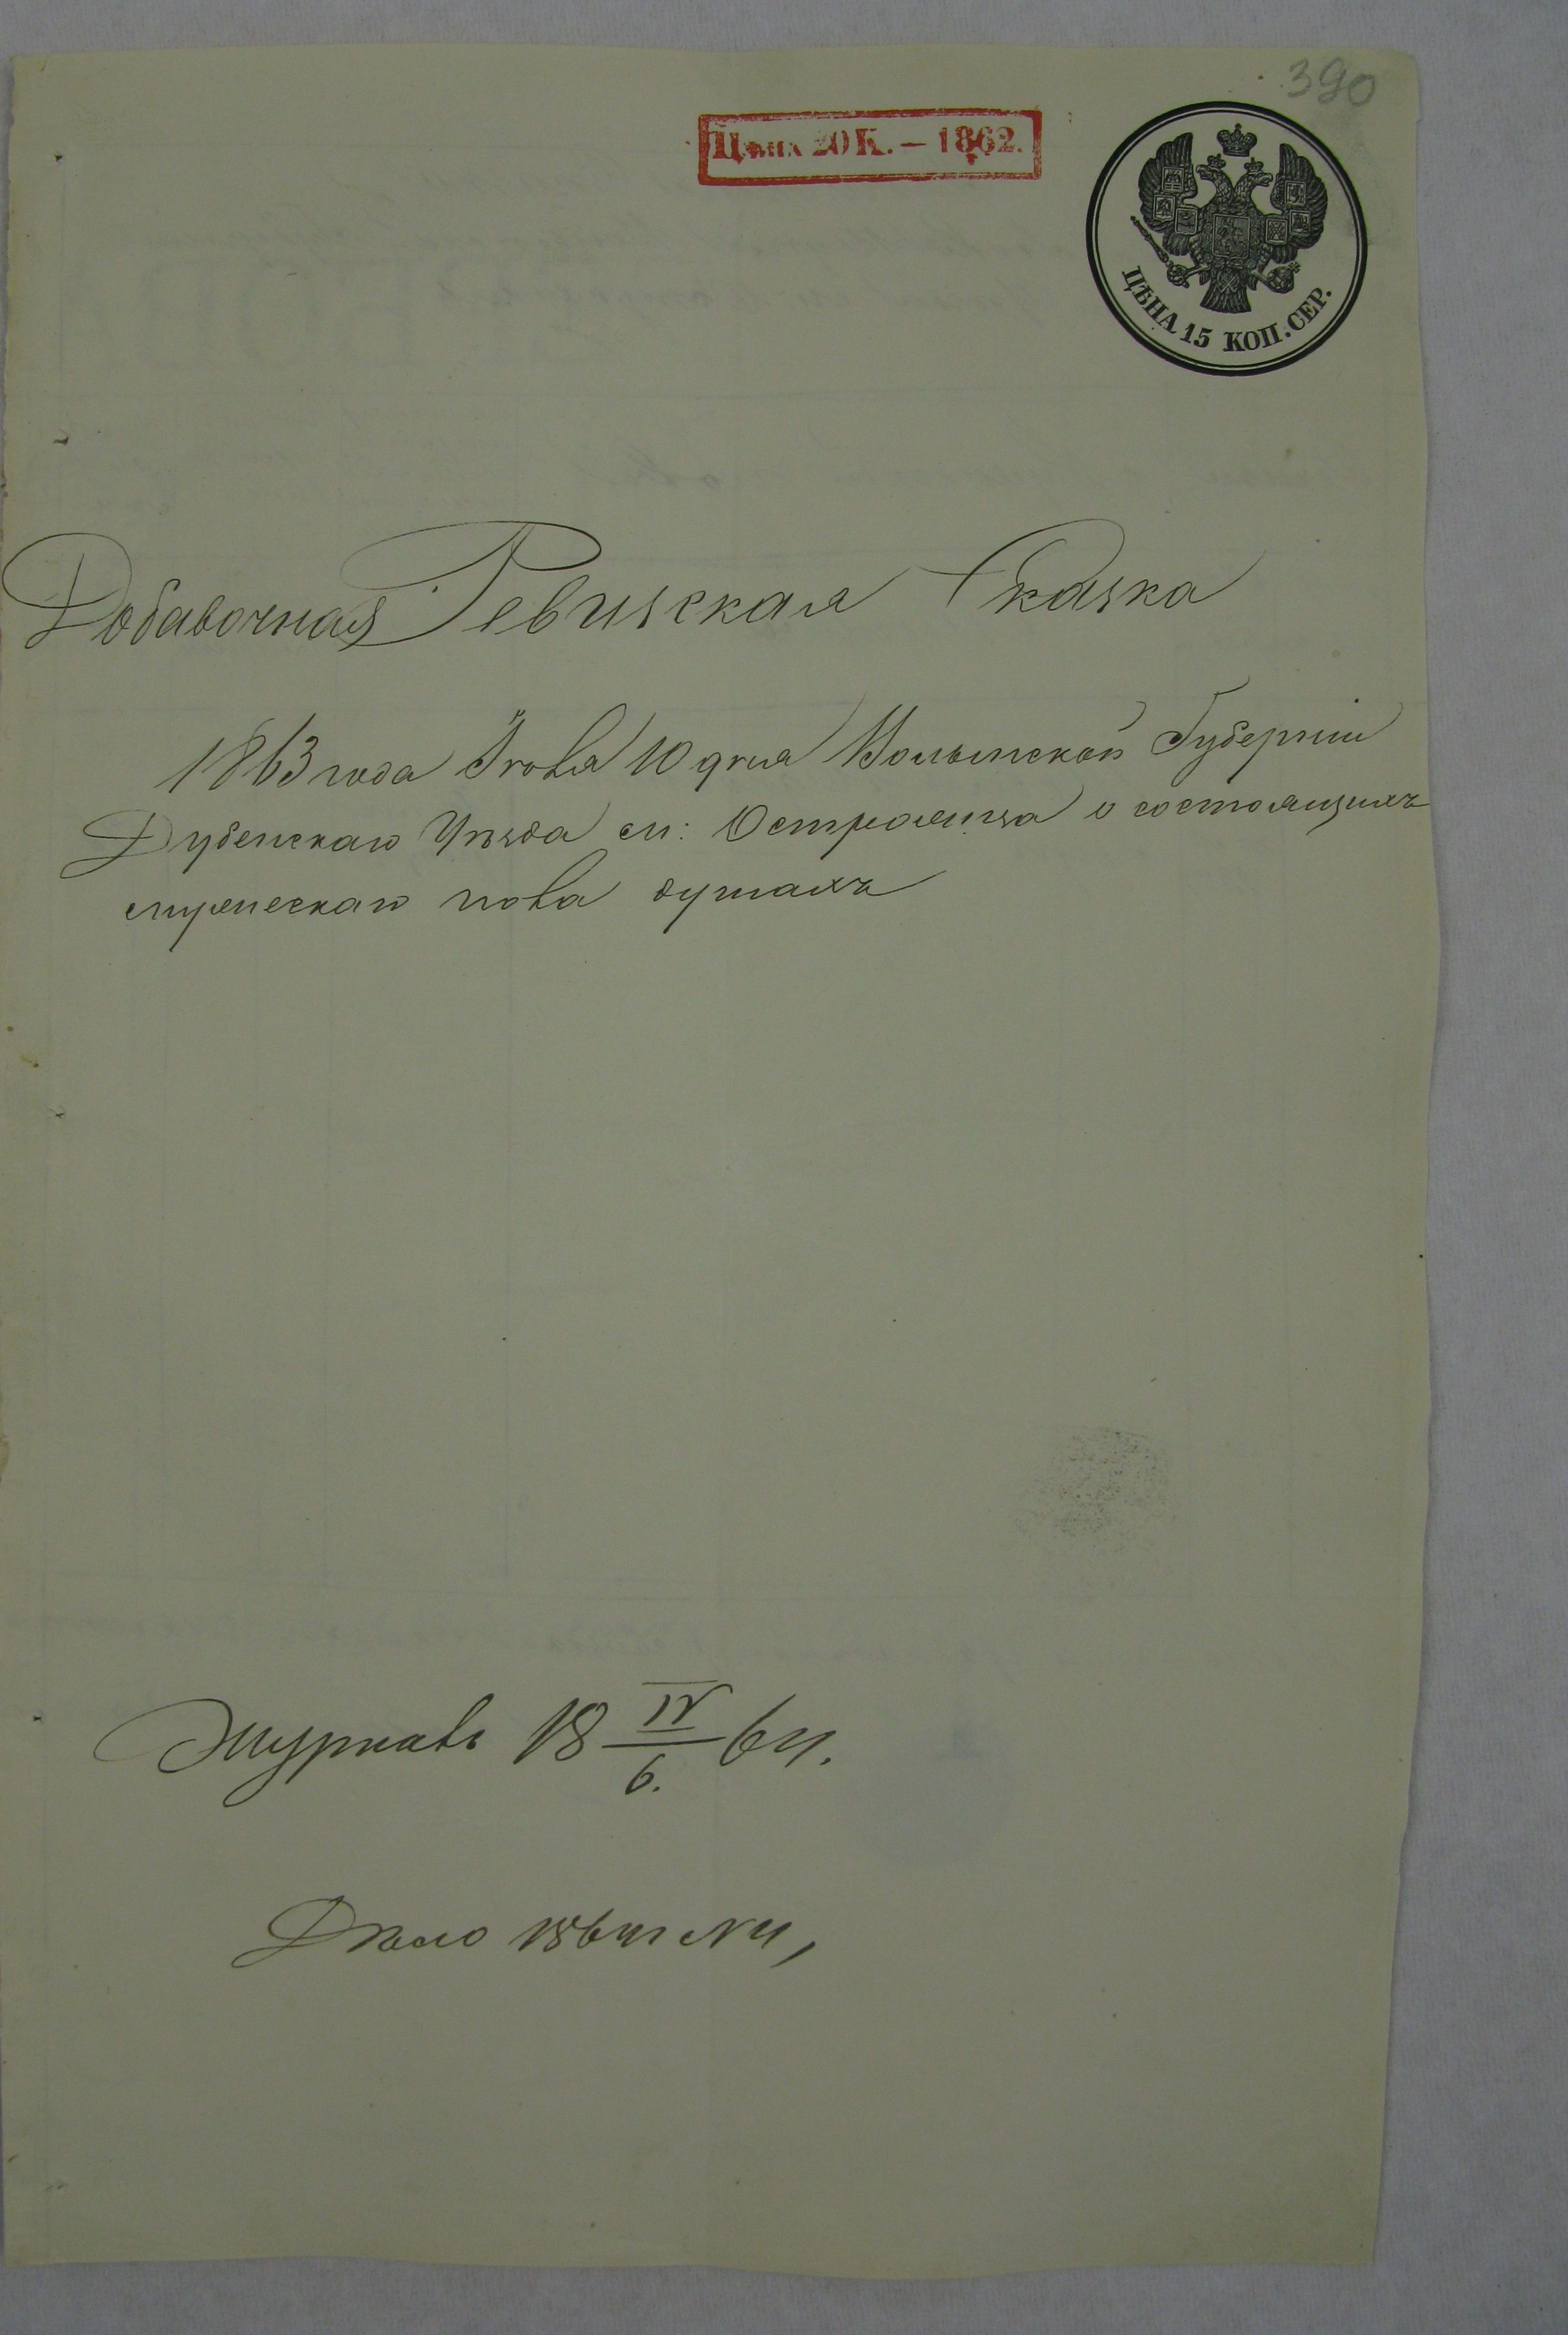 390
Цѣна 20 К. — 1862.
ЦѢНА 15 КОП. СЕР.
Добавочная Ревизская Сказка
1863 года Іюля 10 дня Волынской Губерніи
Дубенскаго Уѣзда м: Остроженца о состоящихъ
мужескаго пола душахъ
Журналъ 18 IV/6. 64.
Дѣло